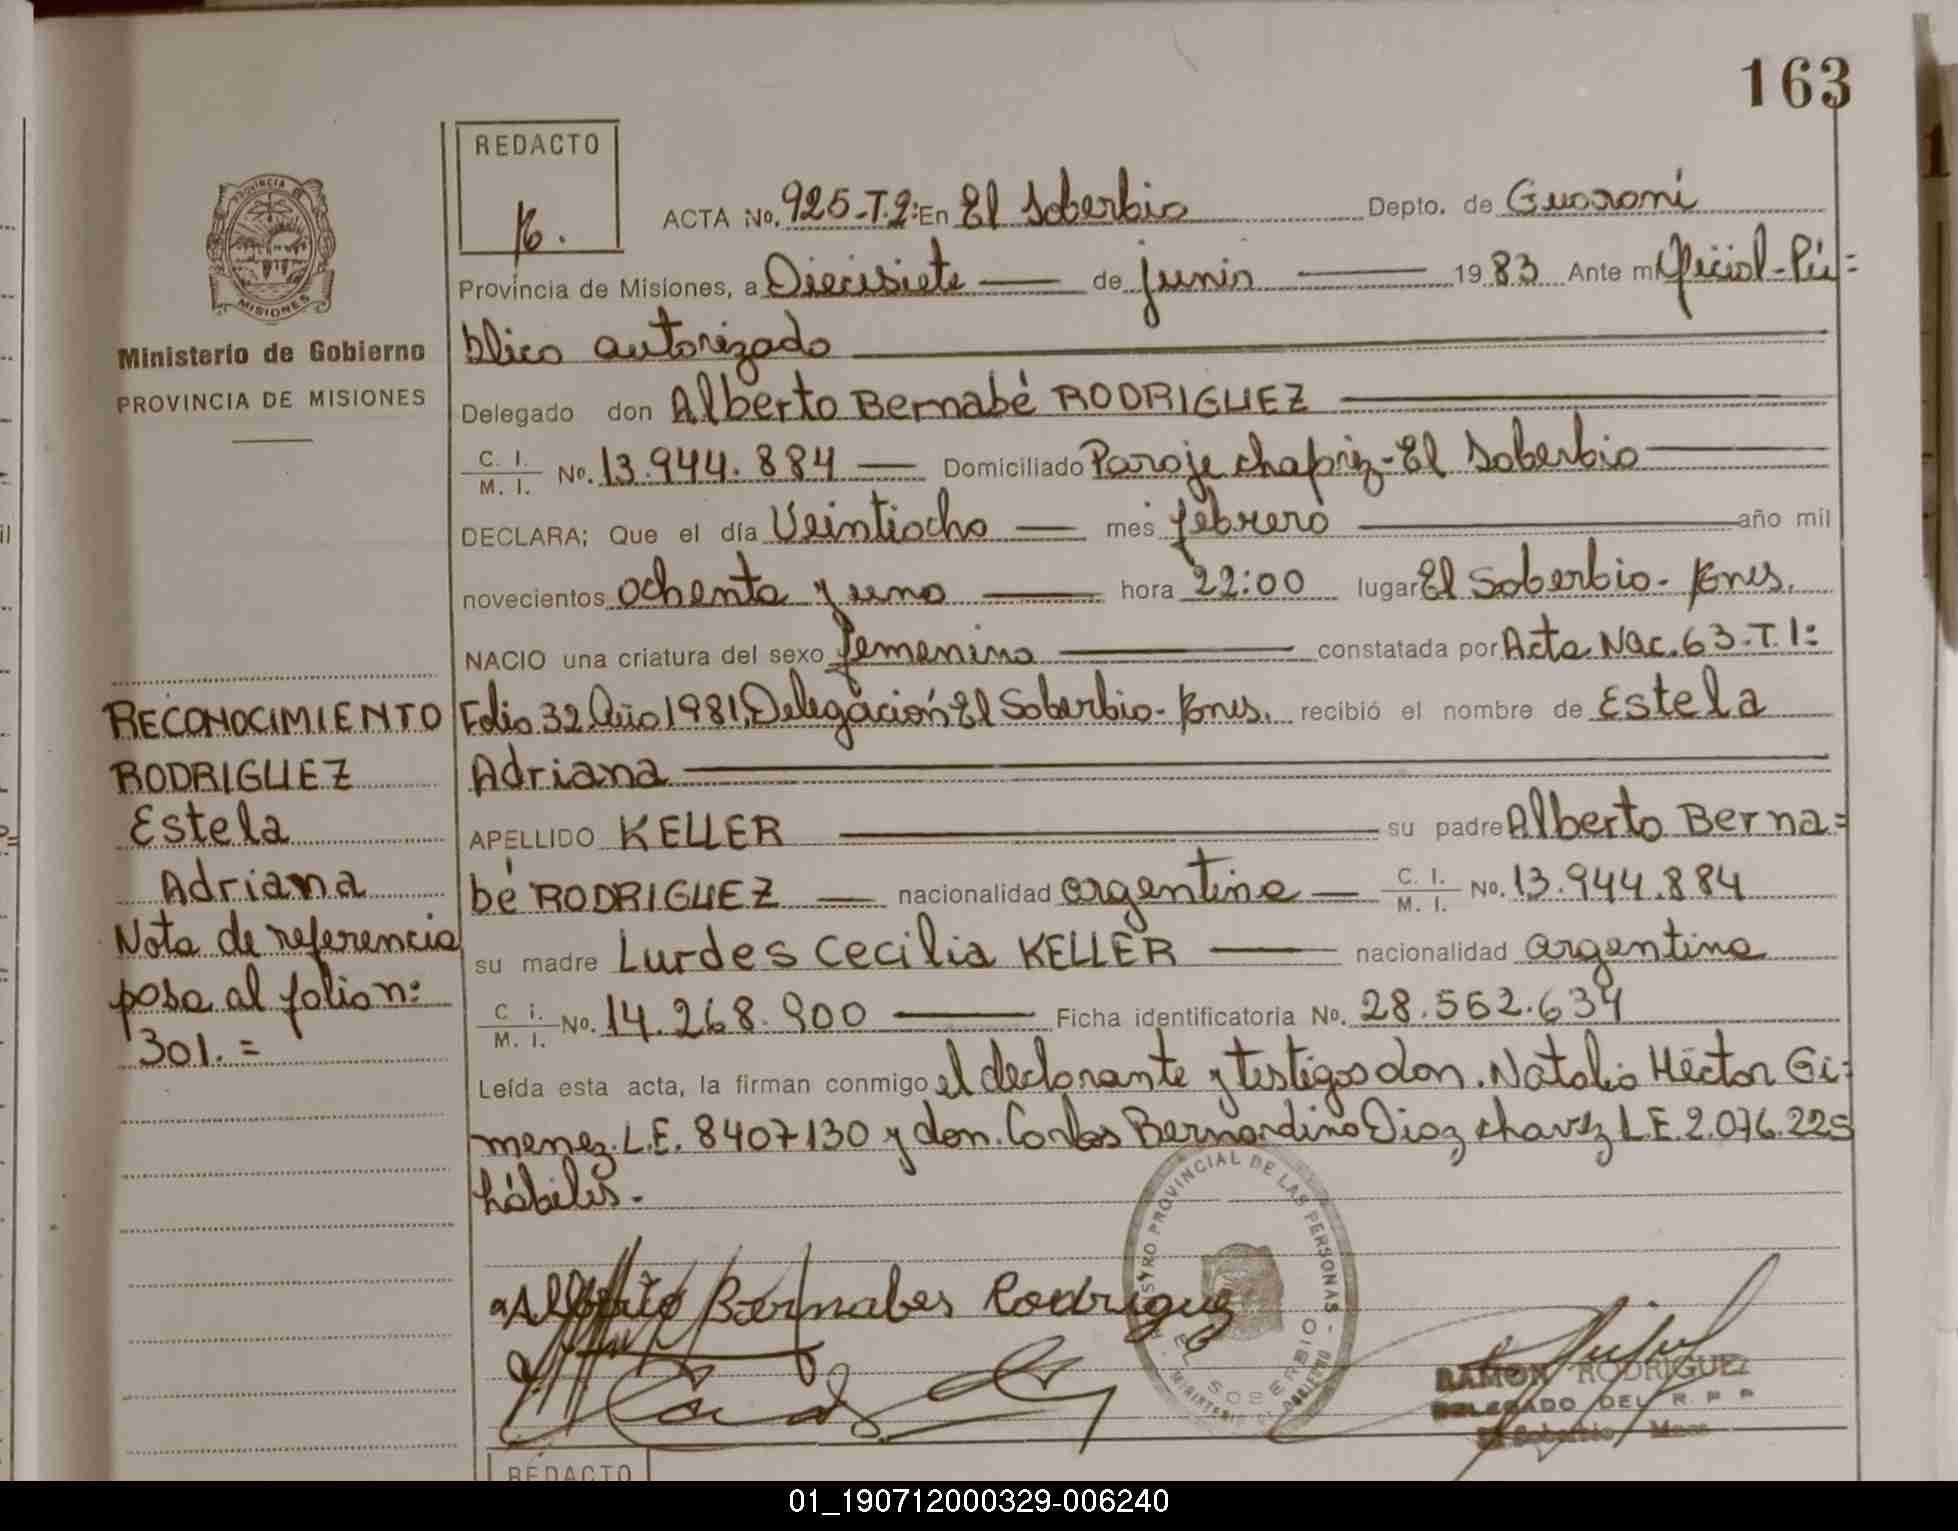 163
REDACTO
ACTA No. 925-T.2: En El Soberbio Depto. de Guaraní
Provincia de Misiones, a Diecisiete de junio 1983 Ante mi Oficial-Pú=
blico autorizado
Delegado don Alberto Bernabé RODRIGUEZ
C. I. M. I. No. 13.944.884 Domiciliado Paraje chafriz-El Soberbio
DECLARA; Que el día Veintiocho mes febrero año mil
novecientos ochenta y uno hora 22:00 lugar El Soberbio- Mnes.
NACIO una criatura del sexo femenino constatada por Acta Nac. 63-T.1:
Folio 32 Año 1981, Delegación El Soberbio- Mnes. recibió el nombre de Estela
Adriana
APELLIDO KELLER su padre Alberto Berna=
bé RODRIGUEZ nacionalidad argentina C. I. M. I. No. 13.944.884
su madre Lurdes Cecilia KELLER nacionalidad argentina
C. i. M. I. No. 14.268.900 Ficha identificatoria No. 28.562.634
Leída esta acta, la firman conmigo el declarante y testigos don. Natalio Héctor Gi=
menez. L.E. 8407130 y don. Carlos Bernardino Diaz chavez L.E. 2.076.225
hábiles.
PROVINCIA DE MISIONES
Ministerio de Gobierno
PROVINCIA DE MISIONES
RECONOCIMIENTO
RODRIGUEZ
Estela
Adriana
Nota de referencia
pasa al folio n:
301.=
Alberto Bernabes Rodriguez
REGISTRO PROVINCIAL DE LAS PERSONAS
EL SOBERBIO
MINISTERIO DE GOBIERNO
RAMON RODRIGUEZ
DELEGADO DEL R. P. P.
El Soberbio Mnes
REDACTO
01_190712000329-006240